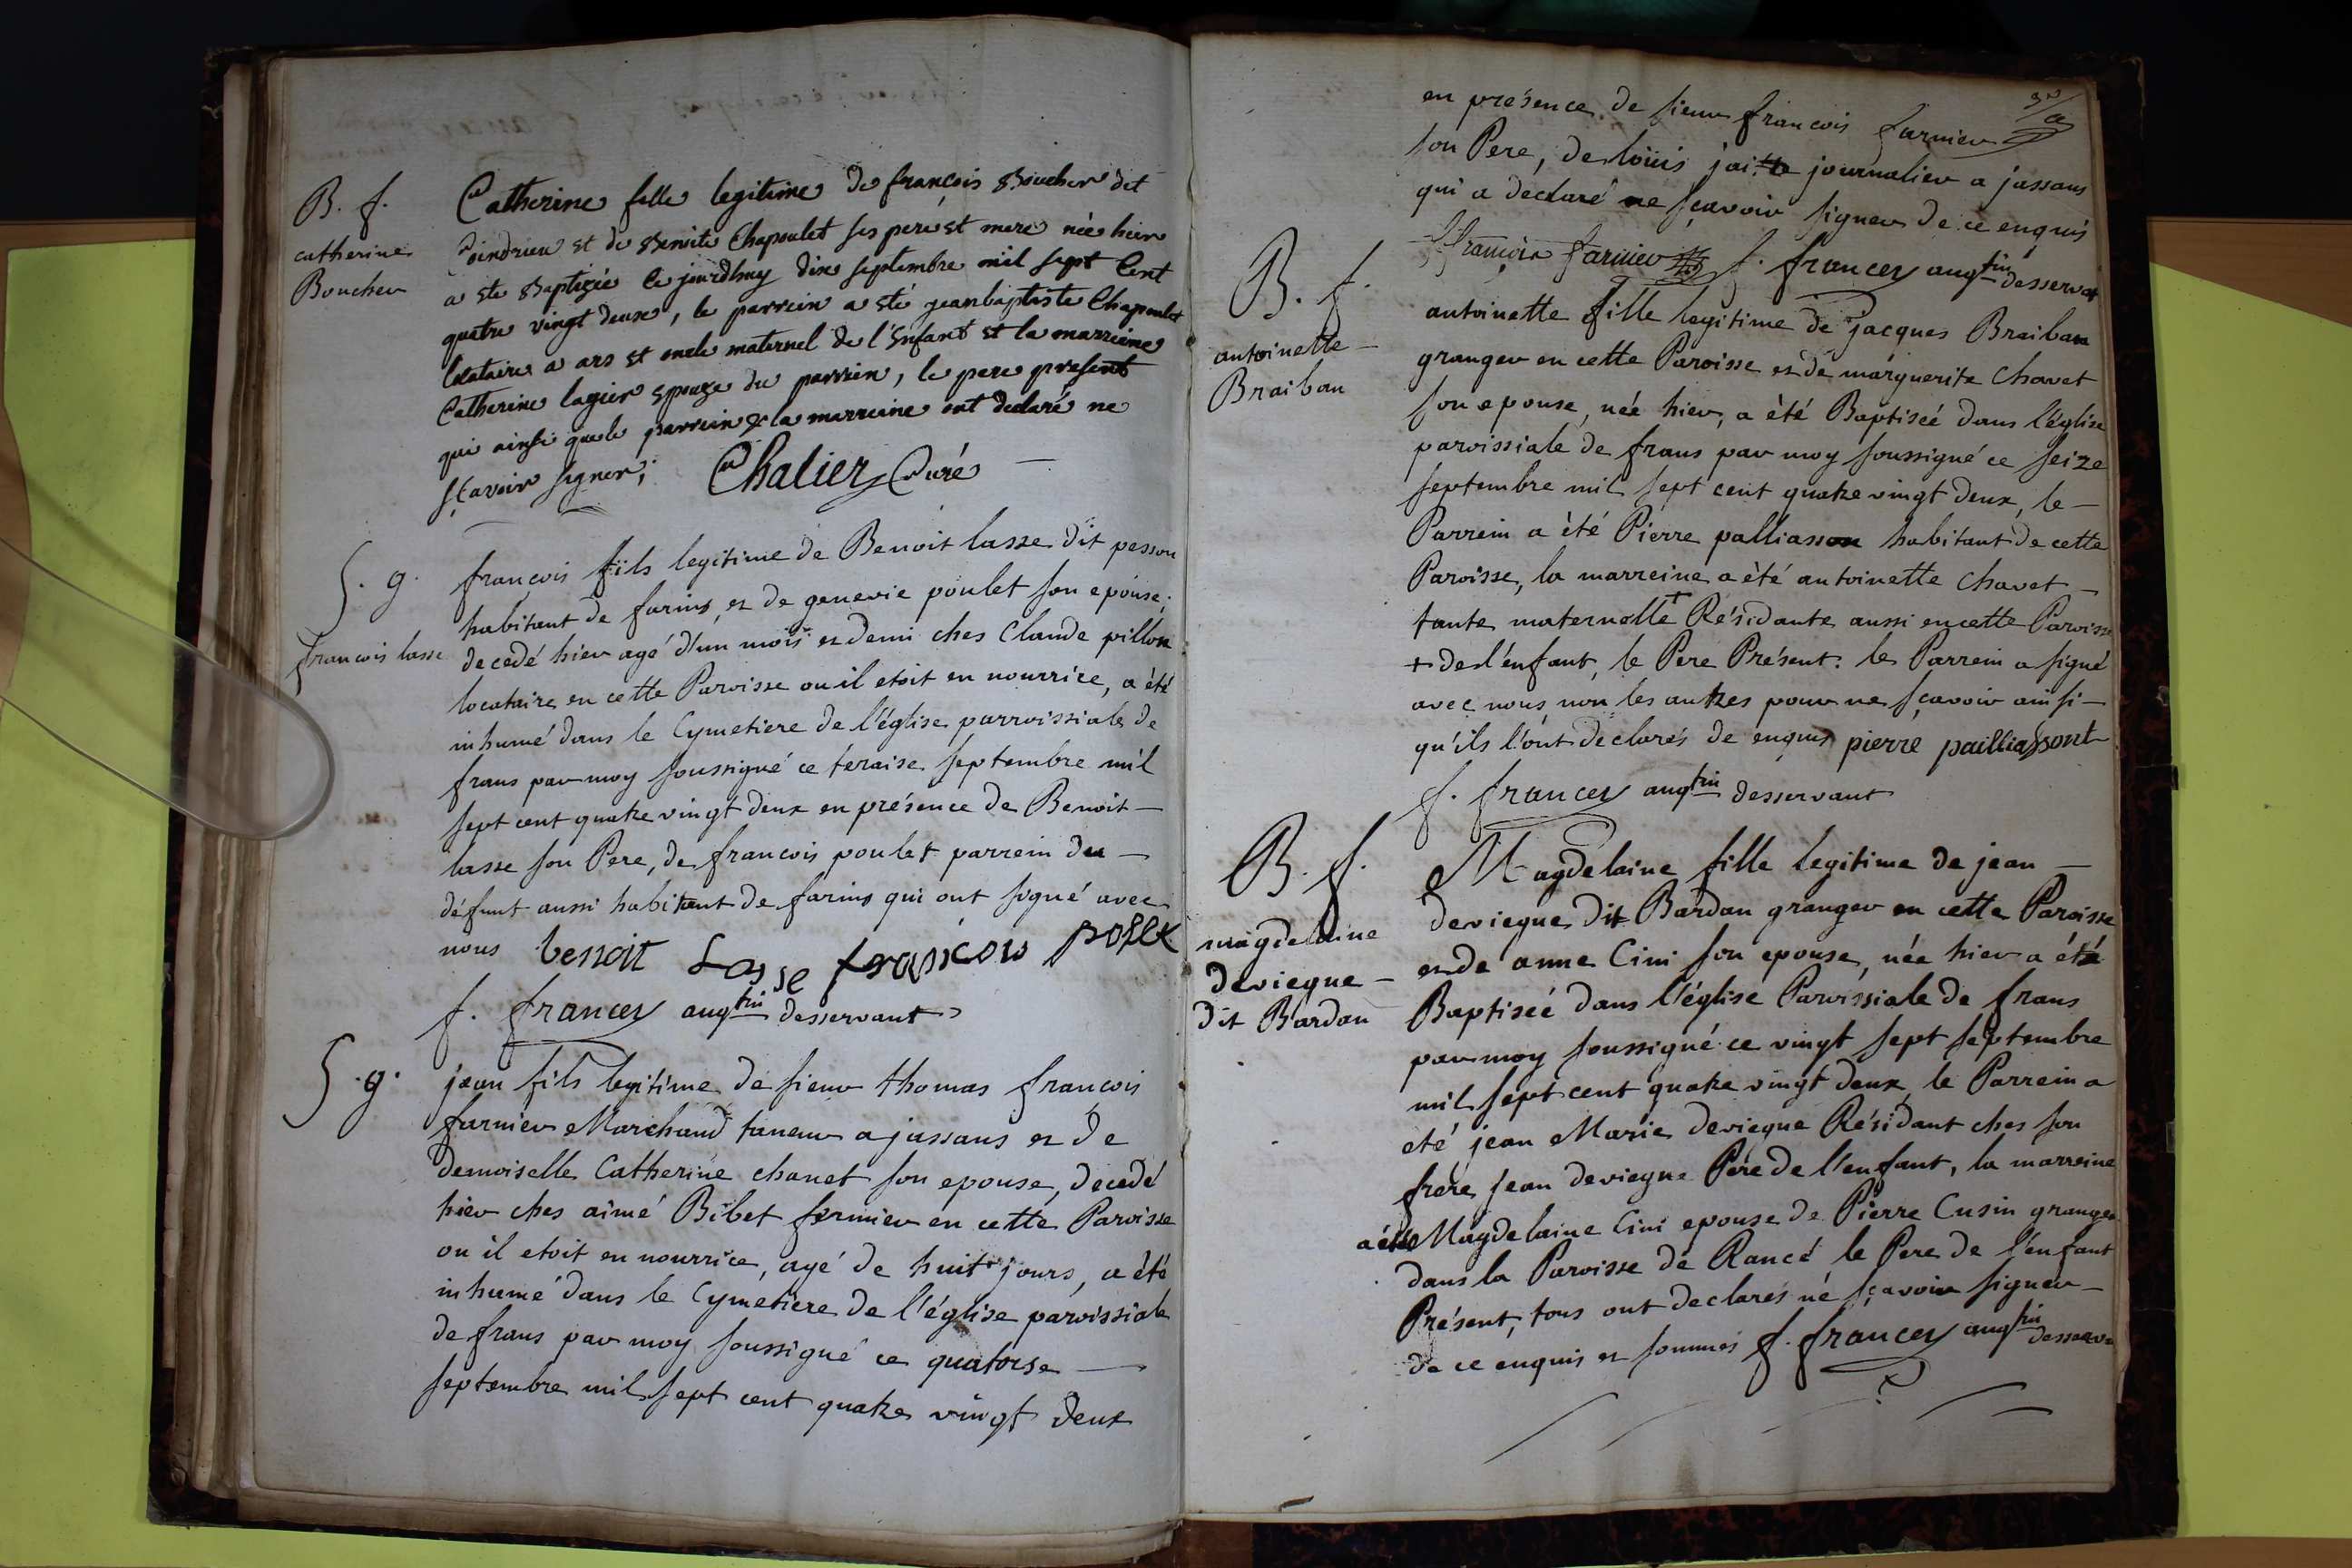 B. f.
catherine
Boucher
Catherine fille legitime de françois Boucher dit
Poindrieu et de Benoite Chapoulet ses pere et mere née hier
a ete Baptizée ce jourdhuy dix septembre mil sept Cent
quatre vingt deux, le parrein a eté jeanbaptiste Chapoulet
locataire a ars et oncle maternel de l'Enfant et la marreine
Catherine lagier epouze du parrein, le pere present
qui ainsi que le parrein & la marreine ont declaré ne
sçavoir signer; Chalier Curé
S. g.
francois lasse
françois fils legitime de Benoit lasse dit pesson
habitant de farins et de genevie poulet son epouse,
decedé hier agé d'un mois et demi ches Claude pillon
locataire en cette Paroisse ou il etoit en nourrice, a èté
inhumé dans le Cymetiere de l'église parroissiale de
frans par moy soussigné ce teraise septembre mil
sept cent quatre vingt deux en présence de Benoit
lasse son Pere, de francois poulet parrein du
défunt aussi habitant de farins qui ont signé avec
nous benoit Lasse francois pollet
f. francey augtin desservant
S. g.
jean fils legitime de sieur thomas francois
farnier Marchand taneur a jassans et de
demoiselle Catherine chanet son epouse, decedé
hier ches aimé Bibet fermier en cette Paroisse
ou il etoit en nourrice, agé de huit jours, a été
inhumé dans le Cymetiere de l'église paroissiale
de frans par moy soussigné ce quatorse
septembre mil sept cent quatre vingt deux
en présence de sieur francois farnier
son Pere, de loüis journalier a jassans
qui a declaré ne sçavoir signer de ce enquis
françois farnier f. francey augtin desservat
B. f.
antoinette
Braiban
antoinette fille legitime de jacques Braiban
granger en cette Paroisse et de marguerite Chavet
son epouse, née hier, a èté Baptiseé dans l'église
paroissiale de frans par moy soussigné ce seize
septembre mil sept cent quatre vingt deux, le
Parrein a èté Pierre palliasson habitant de cette
Paroisse, la marreine a èté antoinette Chavet
tante maternelle + Résidante aussi en cette Paroisse
+ de l'enfant, le Pere Présent. le Parrein a signé
avec nous non les autres pour ne sçavoir ainsi
qu'ils l'ont declarés de enquis pierre pailliassont
f. francey augtin desservant
B. f.
magdelaine
deviegue
dit Bardan
Magdelaine fille legitime de jean
deviegue dit Bardan granger en cette Paroisse
et de anne Cini son epouse, née hier a été
Baptiseé dans l'église Paroissiale de frans
par moy soussigné ce vingt sept septembre
mil sept cent quatre vingt deux, le Parrein a
eté jean Marie deviegue Résidant ches son
frere jean deviegue Pere de l'enfant, la marreine
a été Magdelaine Cini epouse de Pierre Cusin granger
dans la Paroisse de Rancé le Pere de l'enfant
Présent, tous ont declarés né sçavoir signer
de ce enquis et sommés f. francey augtin desserva